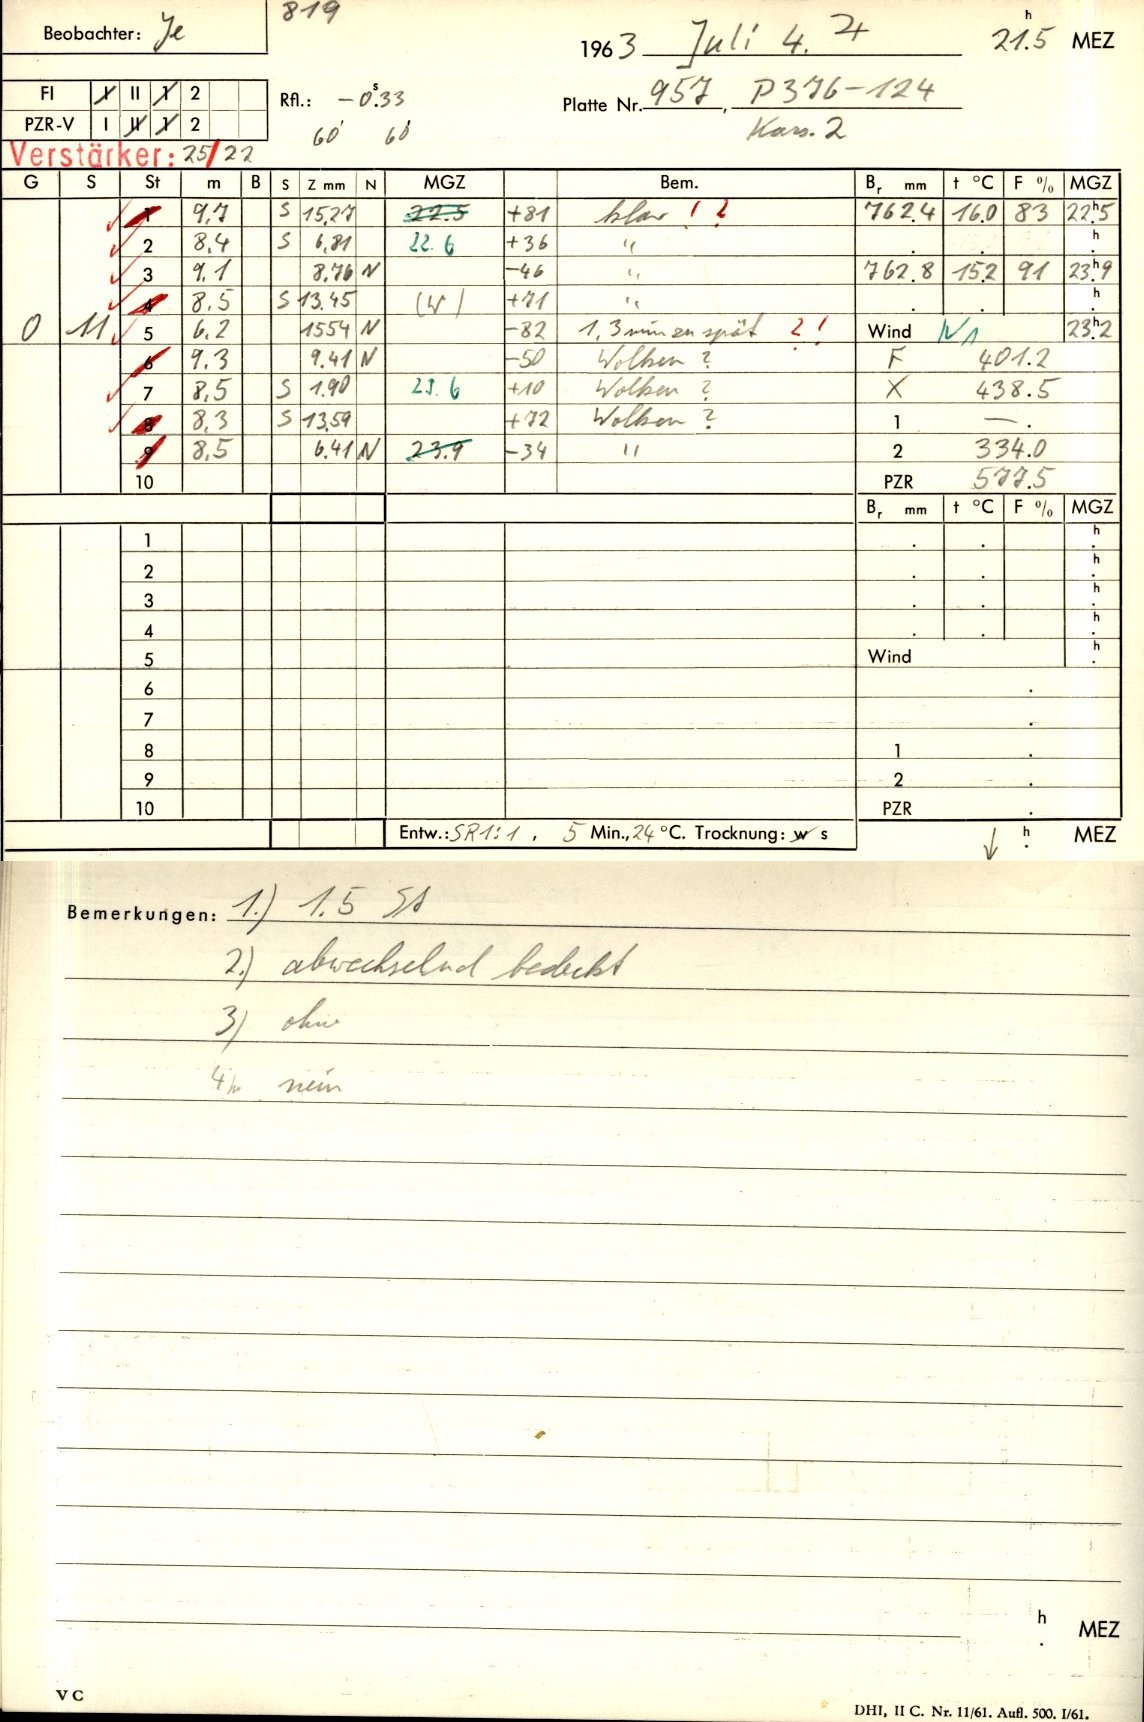 819
Beobachter: Je
1963 Juli 4. ♃ 21.5 h MEZ
FI I II 1 2
PZR-V I II 1 2
Rfl.: -0.s33
60' 60'
Platte Nr. 957, P376-124
Kass. 2
Verstärker: 25/22
G S St m B S Z mm N MGZ Bem. Br mm t °C F % MGZ
1 9,7 S 15,27 22.5 +81 klar ! ? 762.4 16.0 83 22h.5
2 8.4 S 6,81 22.6 +36 " . . h.
3 9.1 8,76 N -46 " 762.8 15.2 91 23h.9
4 8.5 S 13,45 (W) +71 " . . h.
0 11 5 6.2 15,54 N -82 1,3 min zu spät ? ! Wind N1 23h.2
6 9.3 9.41 N -50 Wolken ? F 401.2
7 8,5 S 1.90 23.6 +10 Wolken ? X 438.5
8 8,3 S 13,59 +72 Wolken ? 1 — .
9 8,5 6.41 N 23.9 -34 " 2 334.0
10 PZR 577.5
Br mm t °C F % MGZ
1 . . h.
2 . . h.
3 . . h.
4 . . h.
5 Wind h.
6 .
7 .
8 1 .
9 2 .
10 PZR .
Entw.: SR 1:1 , 5 Min., 24 °C. Trocknung: w s ↓ h. MEZ
Bemerkungen: 1.) 1.5 St
2.) abwechselnd bedeckt
3) ohne
4) nein
h. MEZ
V C
DHI, II C. Nr. 11/61. Aufl. 500. I/61.